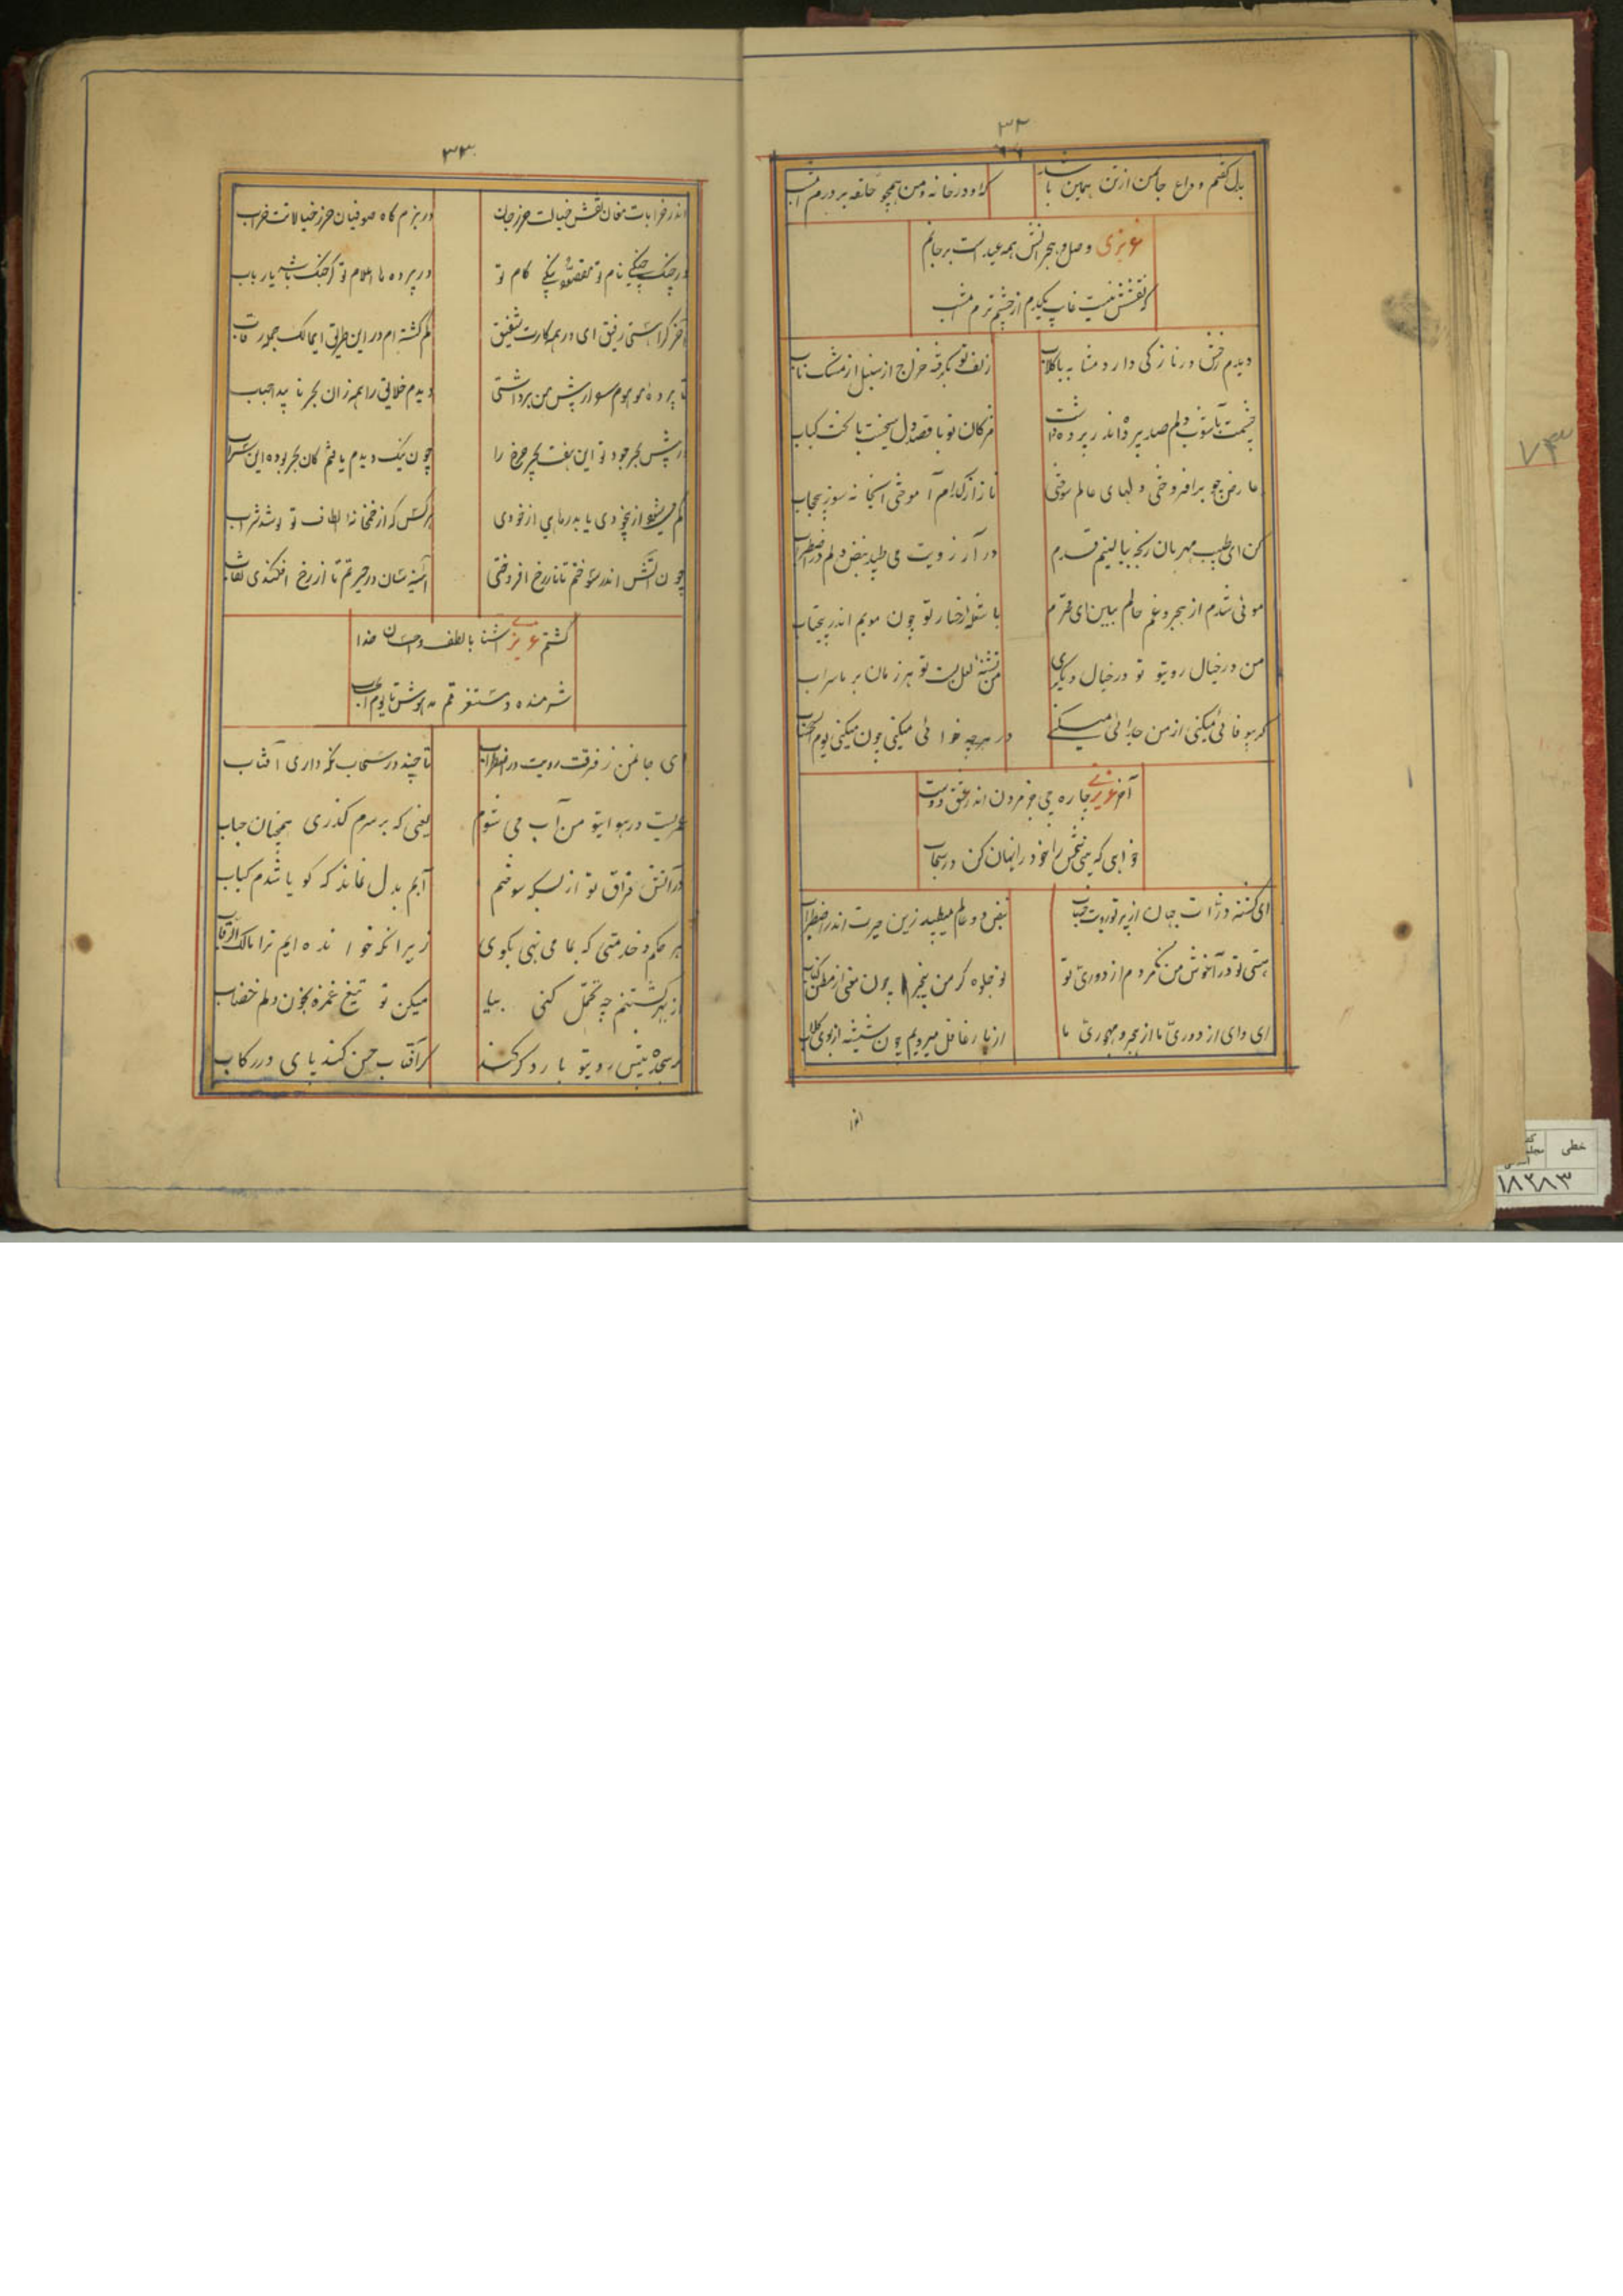 ۳۲
بدل گفتم وداع جان من از تن همین باشد که او در خانه و من همچو حلقه بر درم امشب
عزیزی وصل و هجرانش همه عید است بر جانم
که نقشش نیست غایب یکدم از چشم ترم امشب
دیدم رخش در نازکی دارد مشابه با گلاب زلف تو بگرفته خراج از سنبل از مشک ناب
چشمت بآشوب دلم صد پرده اندر پرده داشت مژگان تو با قصد دل سیخیست با لخت کباب
عارض چو برافروختی دلهای عالم سوختی ناز از کدام آموختی اینجا نه سوز بیحجاب
کن ای طبیب مهربان رنجه ببالینم قدم در آرزویت می طپد نبض دلم در اضطراب
موئی شدم از هجر و غم حالم ببین ای محترم با شعله رخسار تو چون مویم اندر پیچتاب
من در خیال رویتو تو در خیال دیگری من تشنه لعل لبت تو هر زمان بر ما سراب
گر بیوفائی میکنی از من جدائی میکنی در هرچه خوائی میکنی چون میکنی یوم الحساب
آخر عزیزی چاره چی جز مردن اندر عشق دوست
خوابی که بینی شخص را خود را نهان کن در سحاب
ای گشته ذرات جهان از پرتو رویت حباب نبض دو عالم میطپد زین حیرت اندر اضطراب
هستی تو در آغوش من مردم از دوری تو تو جلوه گر من بیخبر چون معنی از بطن کتاب
ای وای از دوری ما از هجر و مهجوری ما از یار غافل میرویم چون شیشه از بوی گلاب
اندر
۳۳
اندر خرابات مغان نقش خیالت حرز جان در بزم گاه صوفیان حرز خیالات خراب
در چنگ چنگی نام تو مقصود یکی کام تو در پرده ها الهام تو گر چنگ باشد یا رباب
آخر کراستی رفیق ای در همه کارت شفیق گم گشته ام در این طریق ای مالک جمهور قاب
تا پرده موهوم سو از پیش من برداشتی دیدم خلایق را همه زان بحر ناپیدا حباب
در پیش بحر جود تو این هفت بحر چرخ را چون نیک دیدم یافتم کان بحر بوده این سراب
گم میشو از بیخودی یابد رهایی از خودی هرکس که از خمخانه الطاف تو نوشد شراب
چون آتش اندر سوختم تا نار رخ افروختی آئینه سان در حیرتم تا از رخ افکندی نقاب
گشتم عزیزی آشنا با لطف و احسان خدا
شرمنده و مستغرقم مدهوش تا یوم الحساب
ای جان من ز فرقت رویت در اضطراب تا چند در سحاب نگه داری آفتاب
عمریست در هوایتو من آب می شوم یعنی که بر سرم گذری همچنان حباب
در آتش فراق تو از بسکه سوختم آبم بدل نماند که گویا شدم کباب
هر حکم و خدمتی که بما می نهی بگوی زیرا که خوانده ایم ترا مالک الرقاب
از بهر کشتنم چه تحمل کنی بیا میکن تو تیغ غمزه بخون دلم خضاب
هر سجده پیش رویتو با رد گر کند گر آفتاب حسن کند پای در رکاب
۷۳
خطی
۱۸۲۸۳